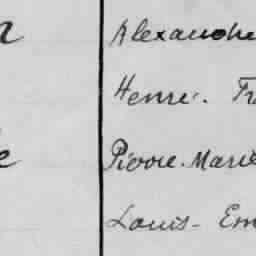 Alexandre
Henri. Fr
Pierre. Marie
Louis- Em